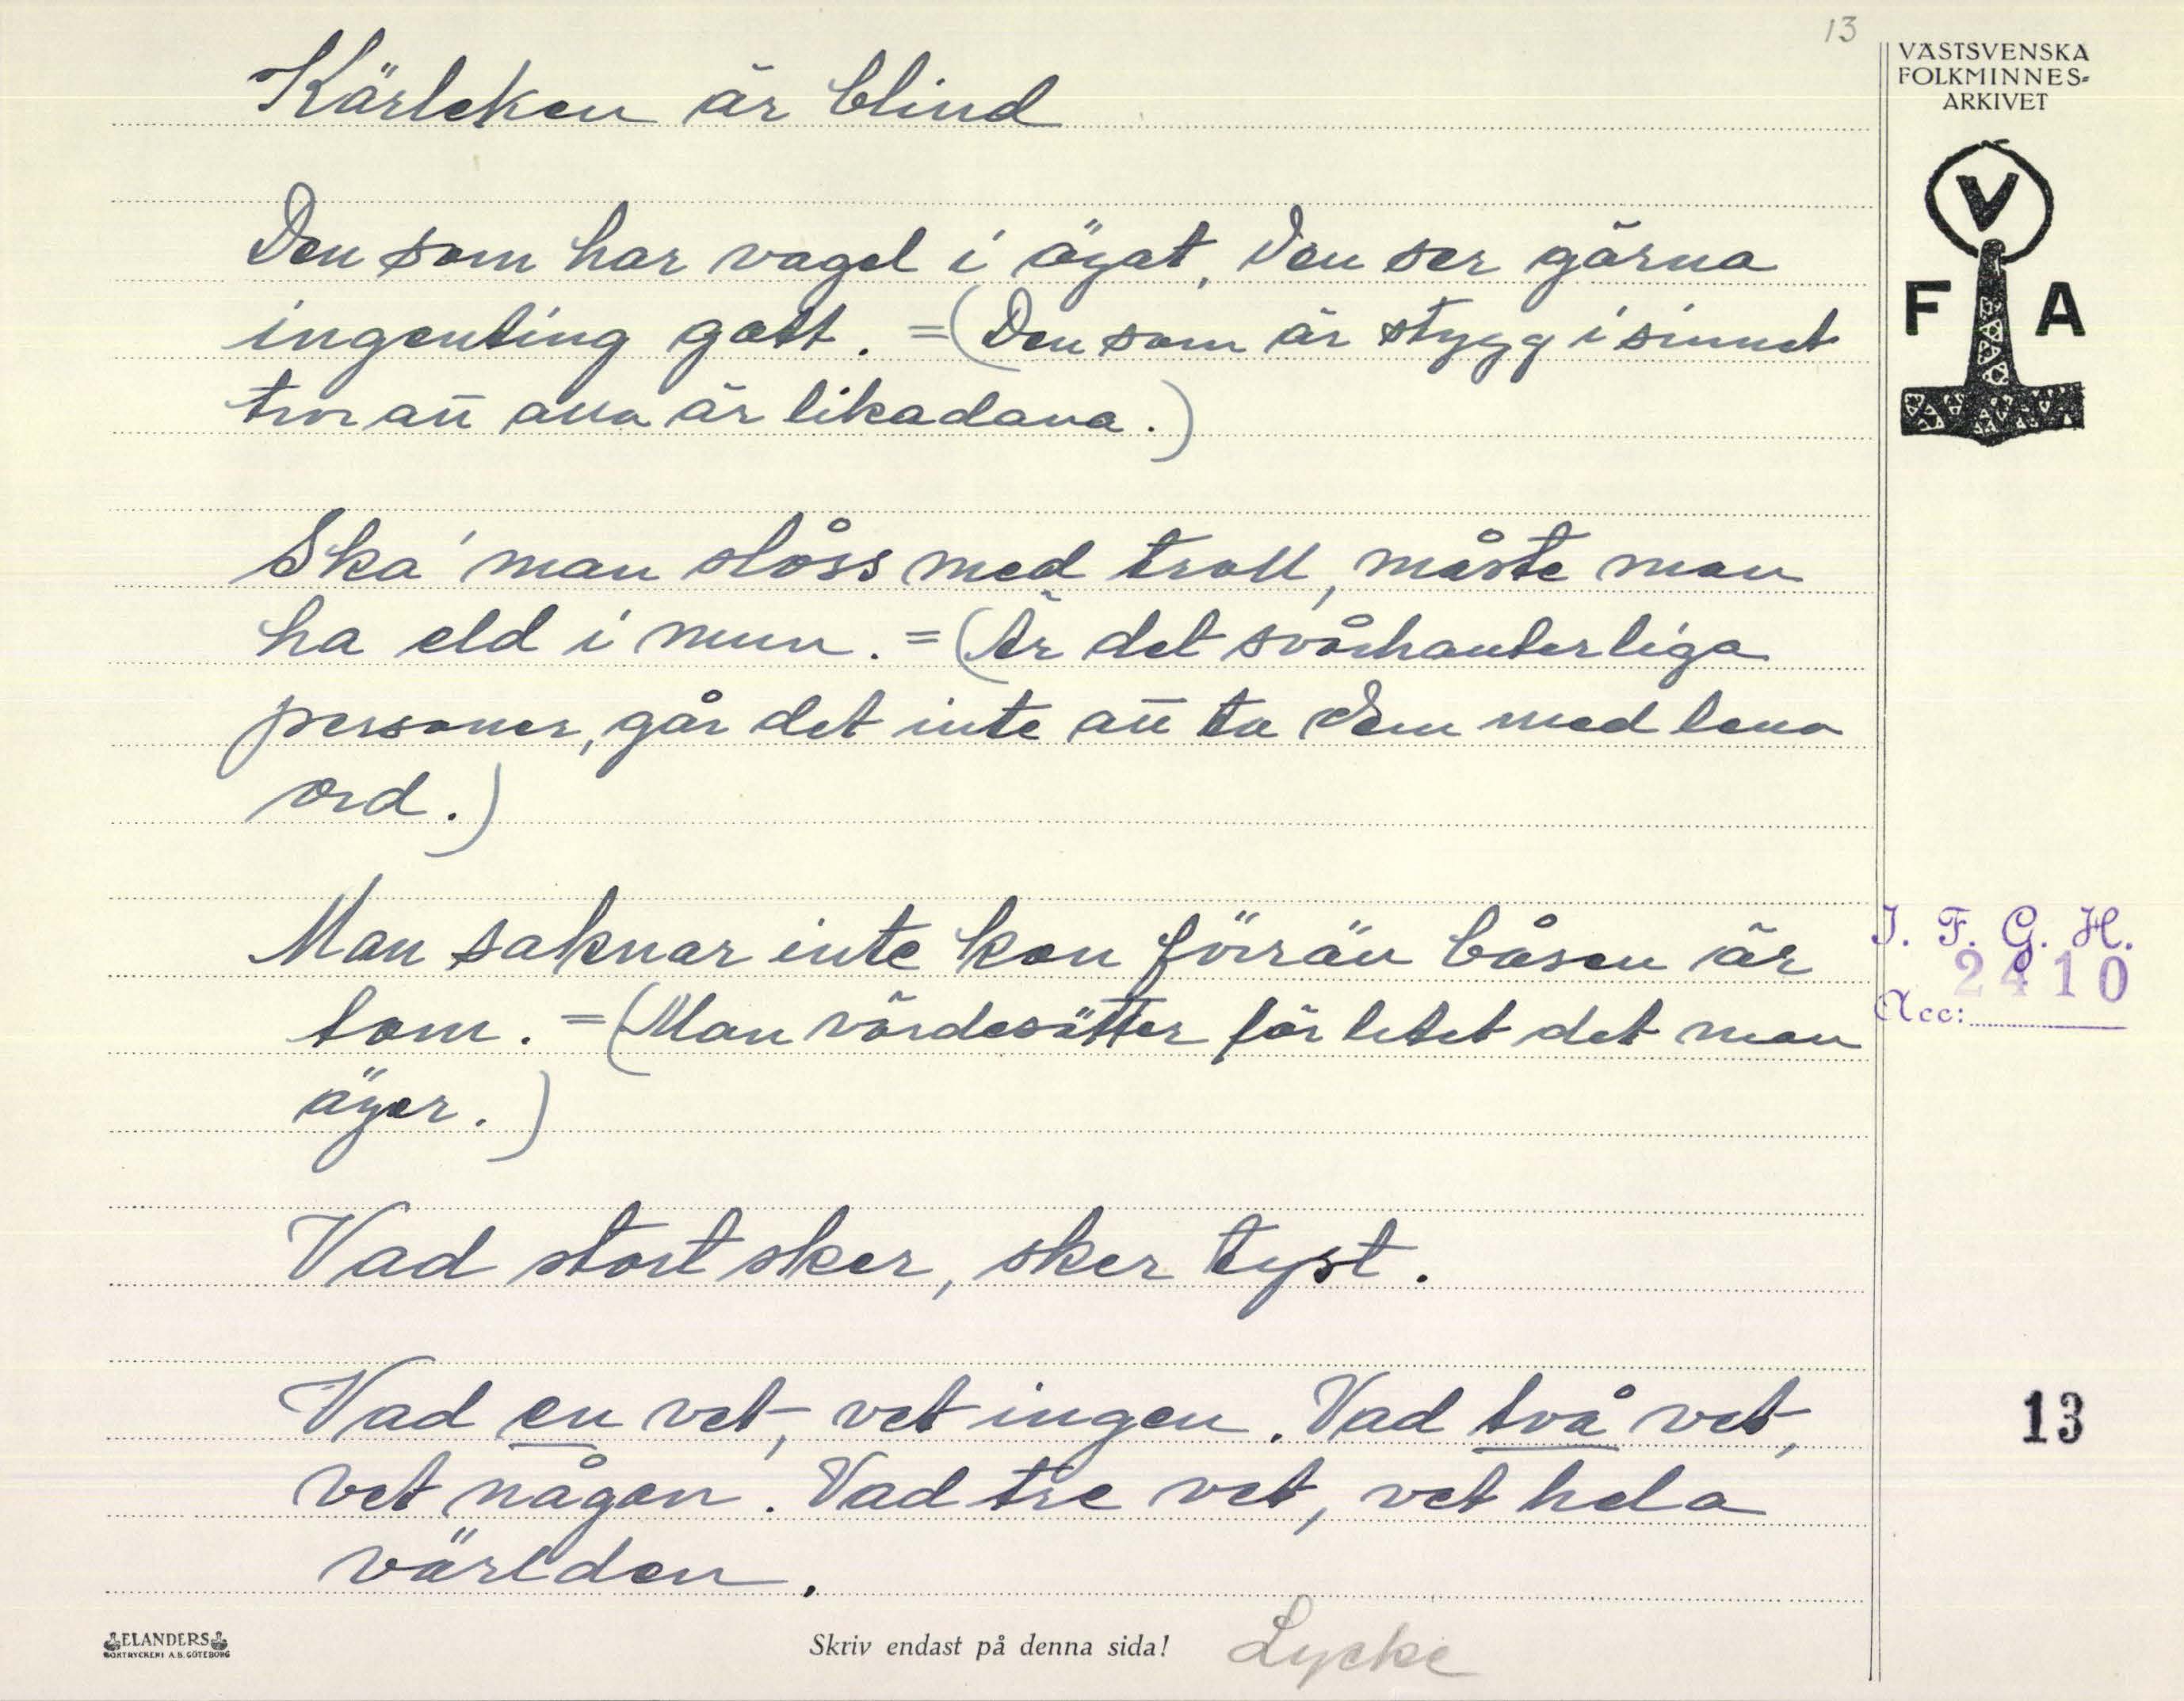 13
VÄSTSVENSKA
FOLKMINNES-
ARKIVET
V
F A
Kärleken är blind
Den som har vagel i ögat, den ser gärna
ingenting gott. = (Den som är stygg i sinnet
tror att alla är likadana.)
Ska' man slåss med troll, måste man
ha eld i mun. = (Är det svårhanterliga
personer, går det inte att ta dem med lena
ord.)
Man saknar inte kon förrän båsen är
tom. = (Man värdesätter för litet det man
äger.)
I. F. G. H.
2410
Acc:
Vad stort sker, sker tyst.
Vad en vet, vet ingen. Vad två vet,
vet någon. Vad tre vet, vet hela
världen.
13
ELANDERS
BOKTRYCKERI A.B. GÖTEBORG
Skriv endast på denna sida!
Lycke